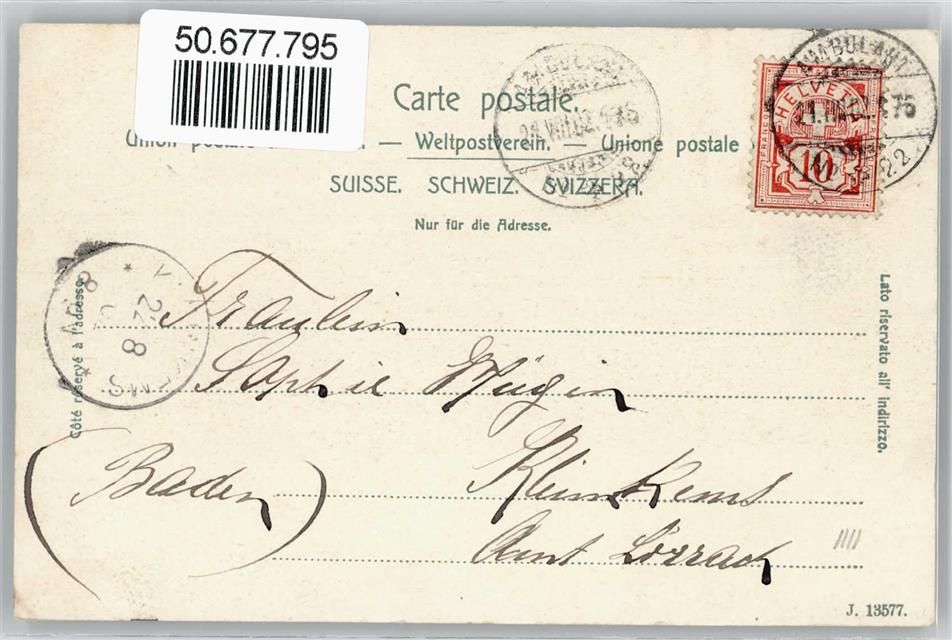 50.677.795
Carte postale.
— Weltpostverein. — Unione postale
SUISSE. SCHWEIZ. SVIZZERA.
Nur für die Adresse.
AMBULANT
HELVETIA
FRANCO
10
Côté réservé à l'adresse.
Lato riservato all' indirizzo.
22 8
Fraulein
Sophie Mügin
(Baden) Kleinkems
Amt Lörrach
J. 13577.